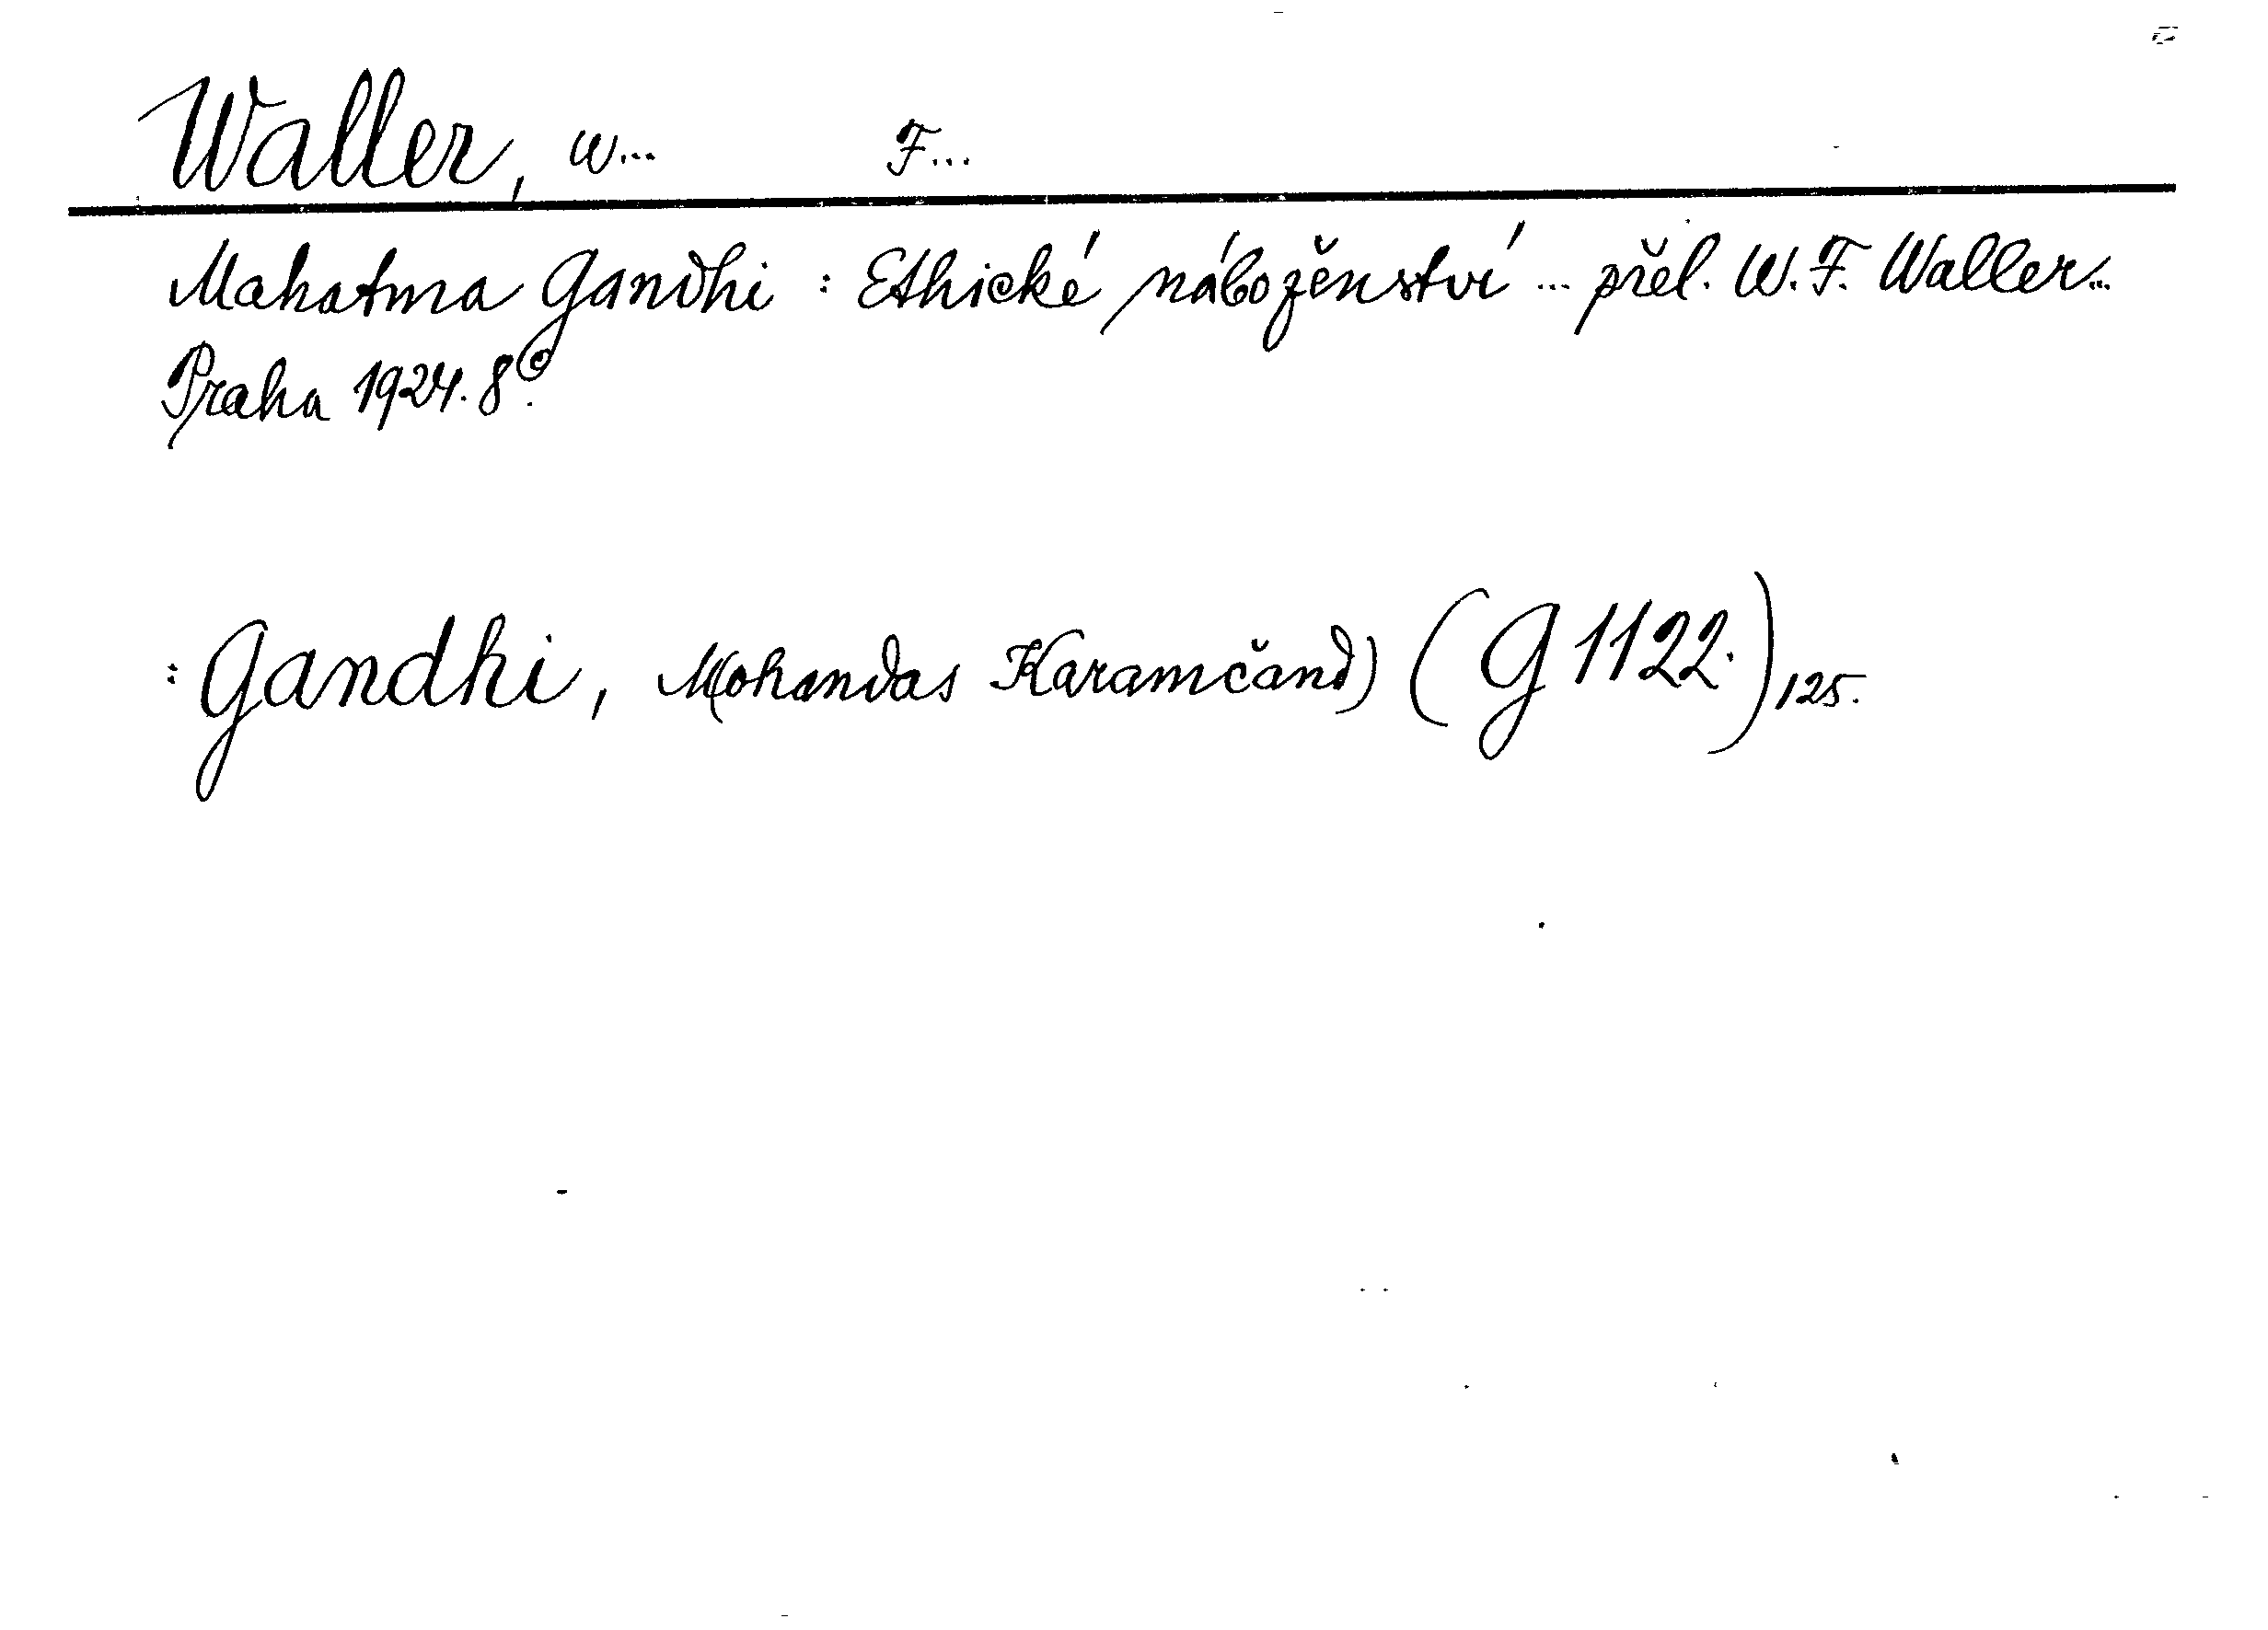 Waller, W... F...
Mahatma Gandhi : Ethické náboženství ... přel. W. F. Waller...
Praha 1924. 8°.
: Gandhi, M(ohandas Karamčand) (G 1122.) 125.